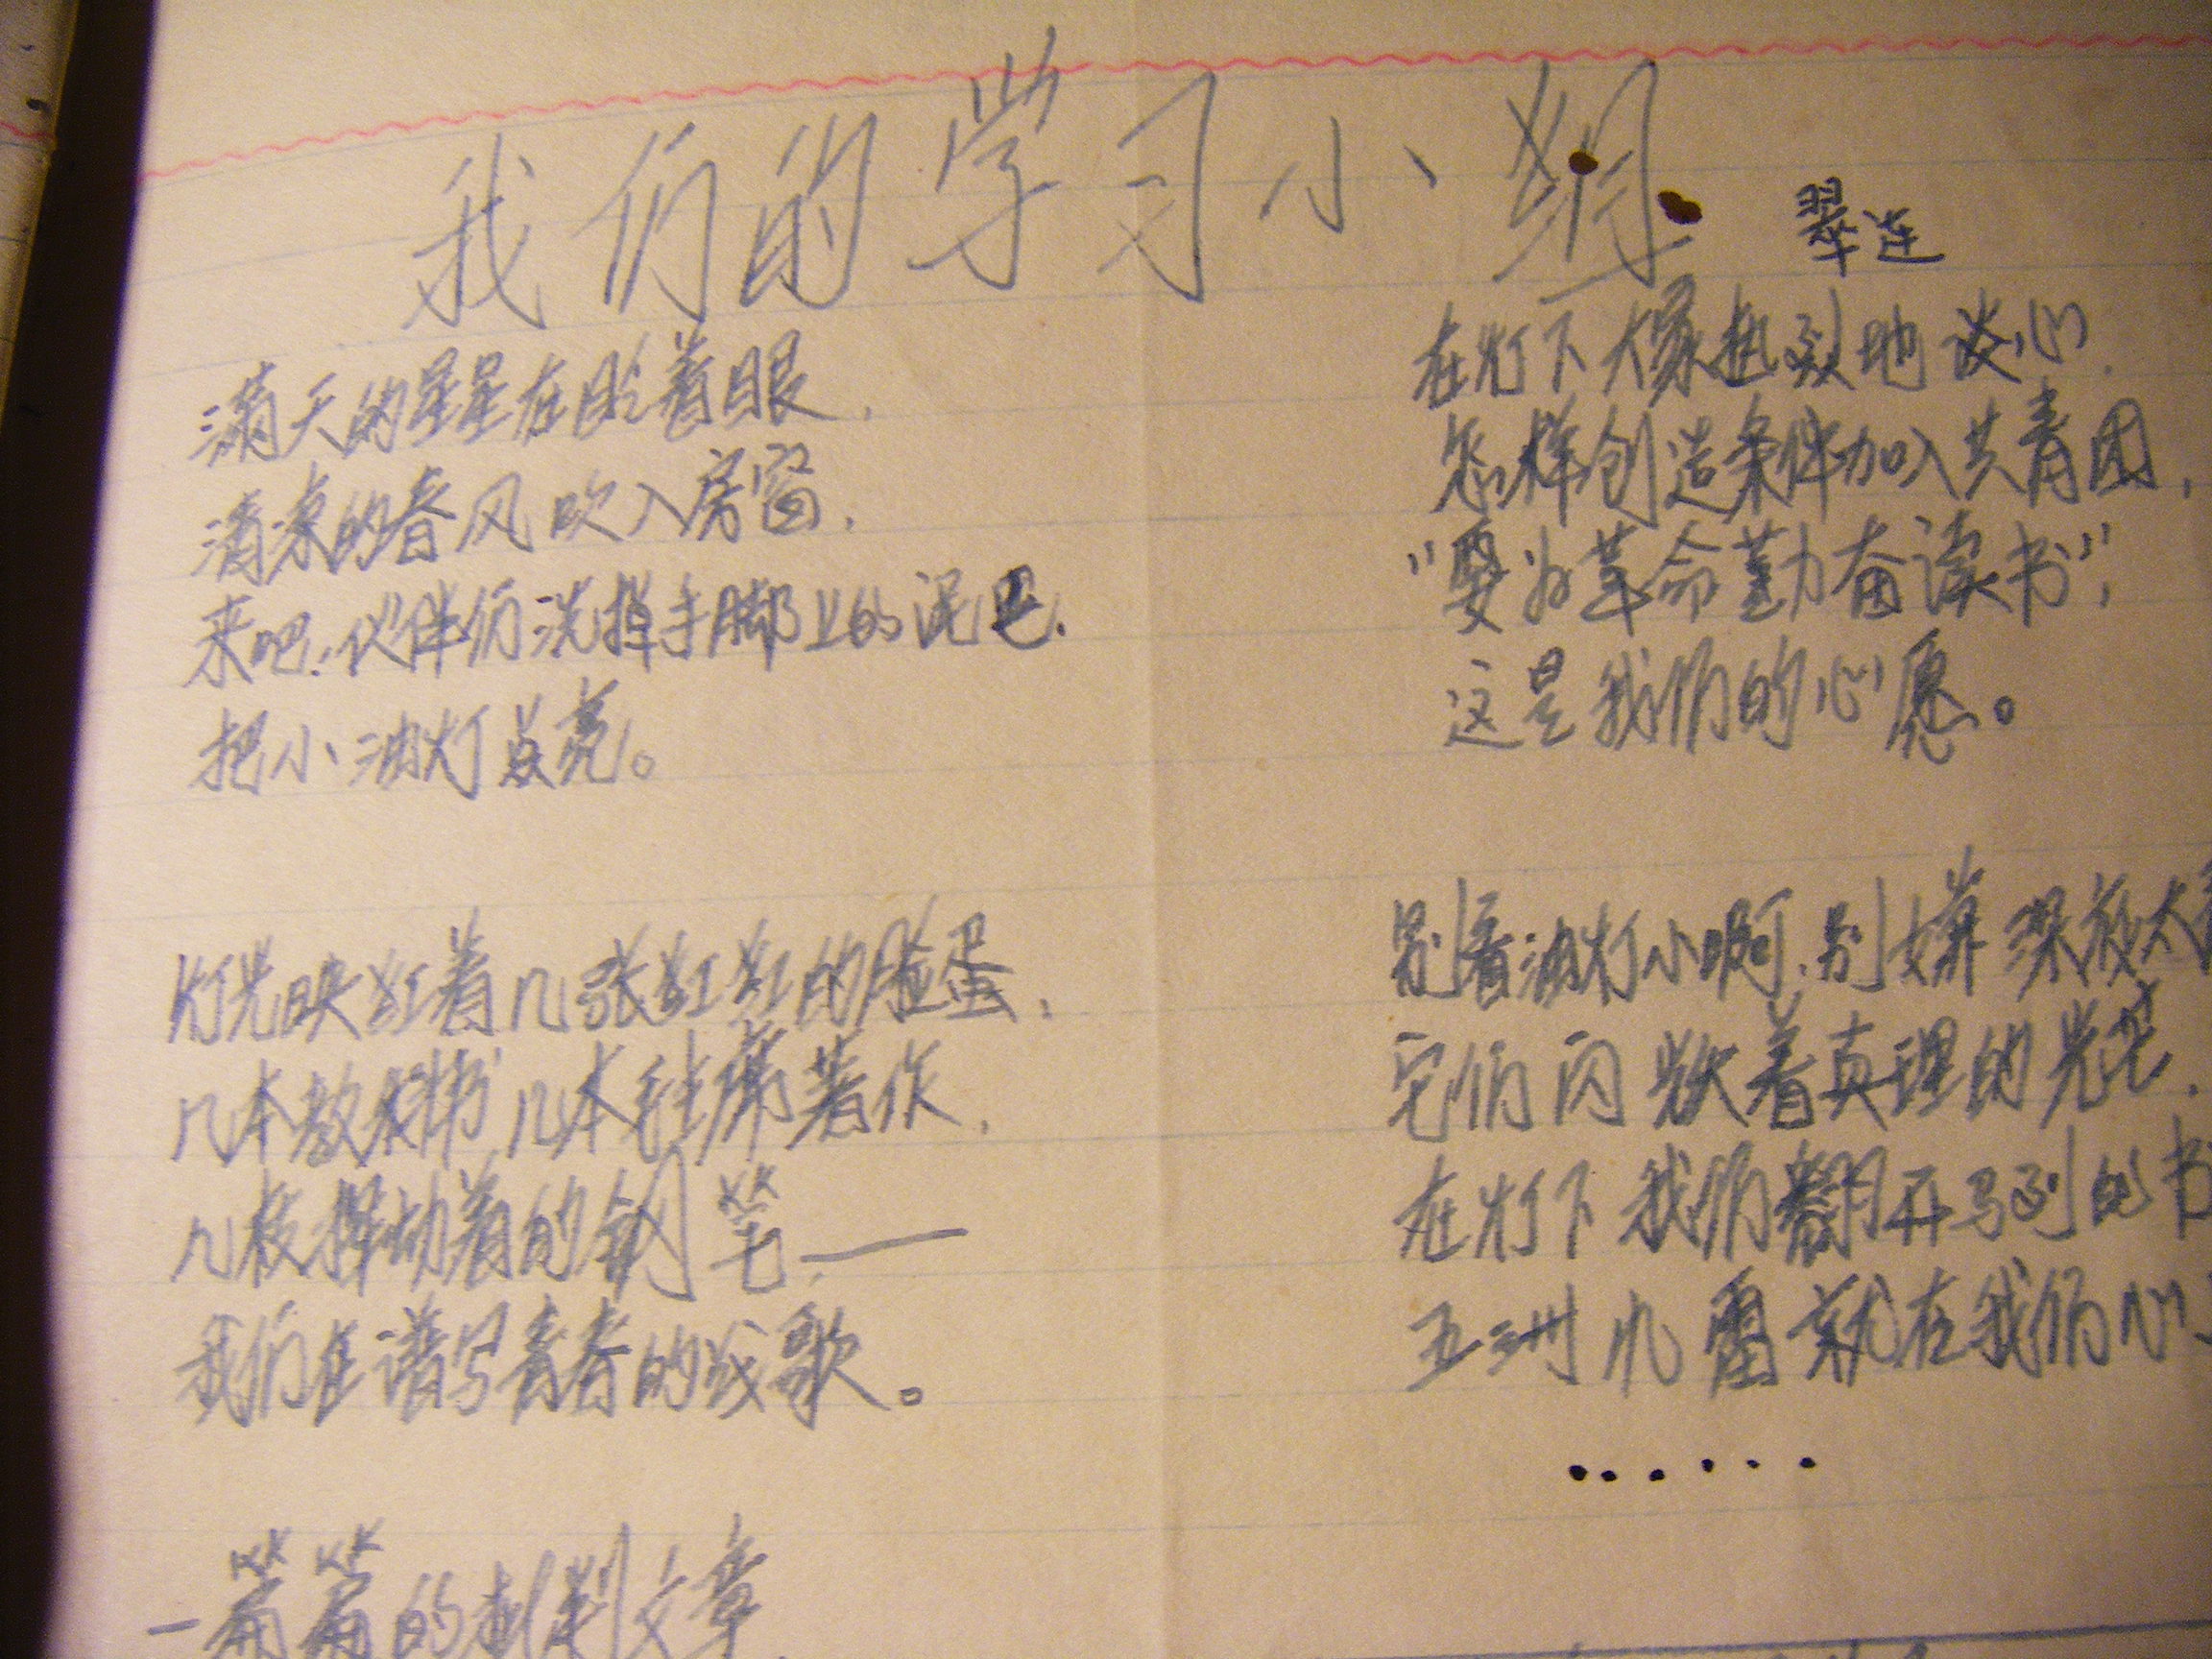 我们的学习小组
翠连
满天的星星在眨着眼，
清凉的春风吹入房窗，
来吧，伙伴们洗掉手脚上的泥巴，
把小油灯点亮。
灯光映红着几张红红的脸蛋，
几本教科书，几本毛主席著作，
几枝挥动着的钢笔，——
我们在谱写青春的战歌。
一篇篇的批判文章，
在灯下大家热烈地谈心，
怎样创造条件加入共青团，
“要为革命勤奋读书”，
这是我们的心愿。
别看油灯小啊，别嫌深夜太
它们闪烁着真理的光芒，
在灯下我们翻开马列的书
五洲风雷就在我们心
······